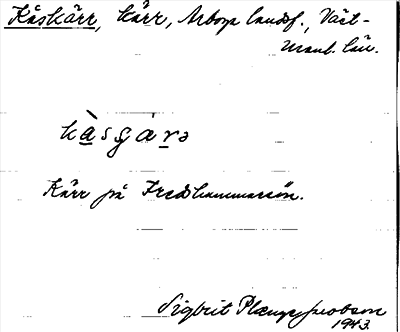 Kåskärr, kärr, Arboga landsf., Väst-
manl. län.
kàsgárə
Kärr på Fredhammarsön.
Sigbrit Plænge Jacobson
1943.